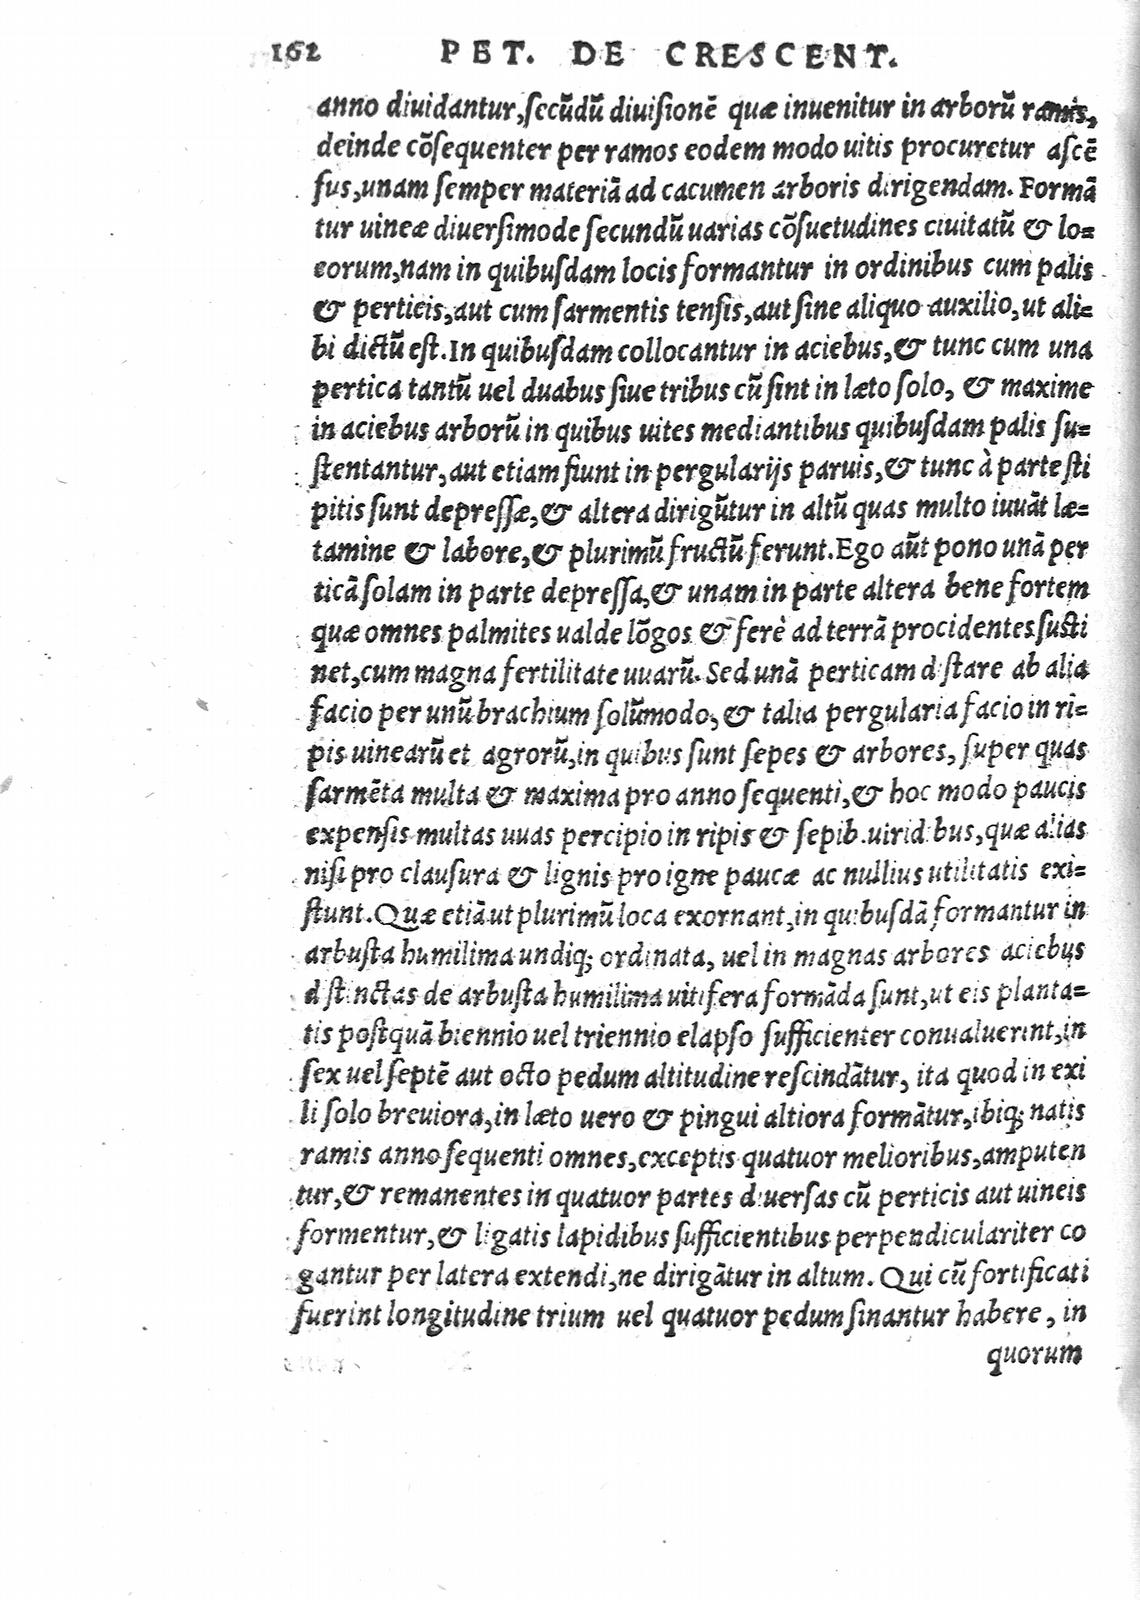 162 PET. DE CRESCENT.
anno diuidantur, secũdũ diuisionẽ quæ inuenitur in arborũ ramis,
deinde cõsequenter per ramos eodem modo uitis procuretur ascẽ
sus, unam semper materiã ad cacumen arboris dirigendam. Formã
tur uineæ diuersimode secundũ uarias cõsuetudines ciuitatũ & lo=
corum, nam in quibusdam locis formantur in ordinibus cum palis
& perticis, aut cum sarmentis tensis, aut sine aliquo auxilio, ut ali=
bi dictũ est. In quibusdam collocantur in aciebus, & tunc cum una
pertica tantũ uel duabus siue tribus cũ sint in læto solo, & maxime
in aciebus arborũ in quibus uites mediantibus quibusdam palis su=
stentantur, aut etiam fiunt in pergularijs paruis, & tunc à parte sti
pitis sunt depressæ, & altera dirigũtur in altũ quas multo iuuãt læ=
tamine & labore, & plurimũ fructũ ferunt. Ego aũt pono unã per
ticã solam in parte depressa, & unam in parte altera bene fortem
quæ omnes palmites ualde lõgos & ferè ad terrã procidentes susti
net, cum magna fertilitate uuarũ. Sed unã perticam distare ab alia
facio per unũ brachium solũmodo, & talia pergularia facio in ri=
pis uinearũ et agrorũ, in quibus sunt sepes & arbores, super quas
sarmẽta multa & maxima pro anno sequenti, & hoc modo paucis
expensis multas uuas percipio in ripis & sepib. uiridibus, quæ alias
nisi pro clausura & lignis pro igne paucæ ac nullius utilitatis exi=
stunt. Quæ etiã ut plurimũ loca exornant, in quibusdã formantur in
arbusta humilima undiq; ordinata, uel in magnas arbores aciebus
distinctas de arbusta humilima uitifera formãda sunt, ut eis planta=
tis postquã biennio uel triennio elapso sufficienter conualuerint, in
sex uel septẽ aut octo pedum altitudine rescindãtur, ita quod in exi
li solo breuiora, in læto uero & pingui altiora formãtur, ibiq; natis
ramis anno sequenti omnes, exceptis quatuor melioribus, amputen
tur, & remanentes in quatuor partes diuersas cũ perticis aut uineis
formentur, & ligatis lapidibus sufficientibus perpendiculariter co
gantur per latera extendi, ne dirigãtur in altum. Qui cũ fortificati
fuerint longitudine trium uel quatuor pedum sinantur habere, in
quorum